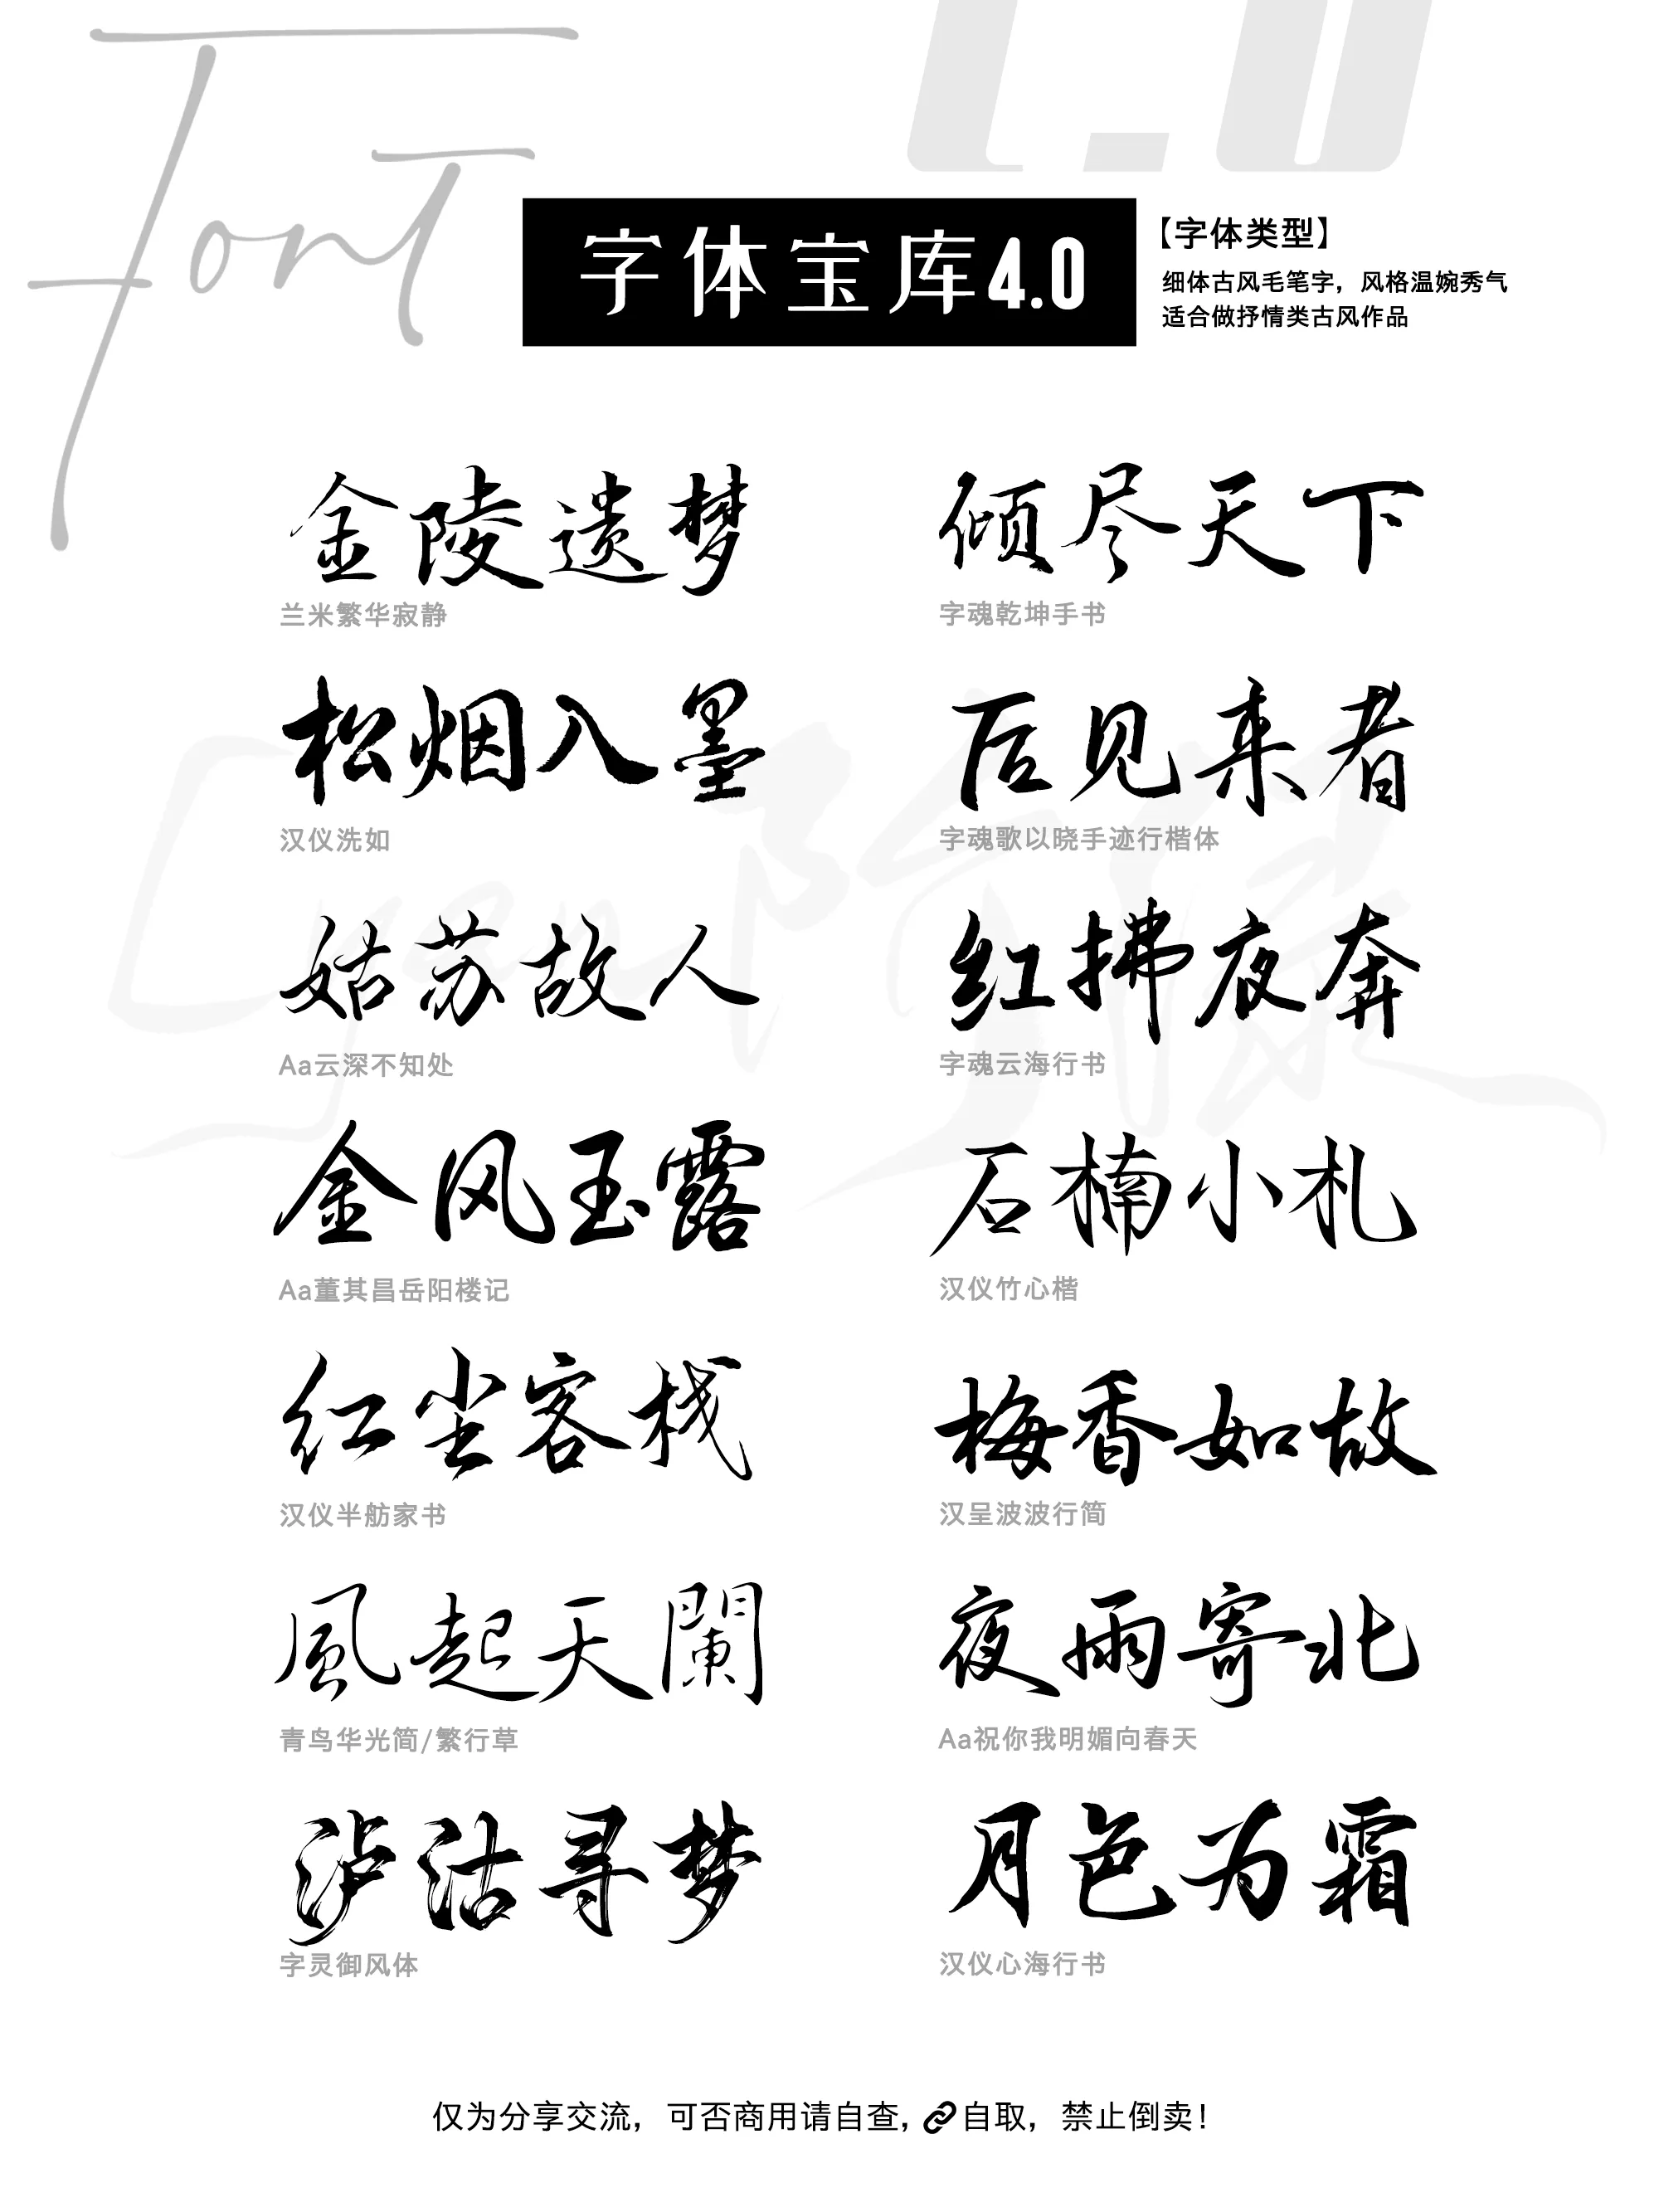 Font
4.0
字体宝库4.0
【字体类型】
细体古风毛笔字，风格温婉秀气
适合做抒情类古风作品
金陵遗梦
兰米繁华寂静
倾尽天下
字魂乾坤手书
松烟入墨
汉仪洗如
后见来者
字魂歌以晓手迹行楷体
姑苏故人
Aa云深不知处
红拂夜奔
字魂云海行书
金风玉露
Aa董其昌岳阳楼记
石楠小札
汉仪竹心楷
红尘客栈
汉仪半舫家书
梅香如故
汉呈波波行简
風起天闌
青鸟华光简/繁行草
夜雨寄北
Aa祝你我明媚向春天
泸沽寻梦
字灵御风体
月色为霜
汉仪心海行书
仅为分享交流，可否商用请自查，自取，禁止倒卖！